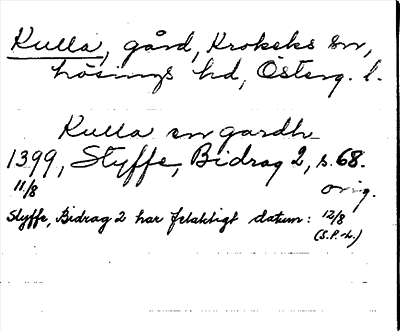 Kulla, gård, Krokeks sn,
Lösings hd, Österg. l.
Kulla en gardh
1399, Styffe, Bidrag 2, s. 68.
11/8 orig.
Styffe, Bidrag 2 har felaktigt datum: 12/8
(S.P.-L.)